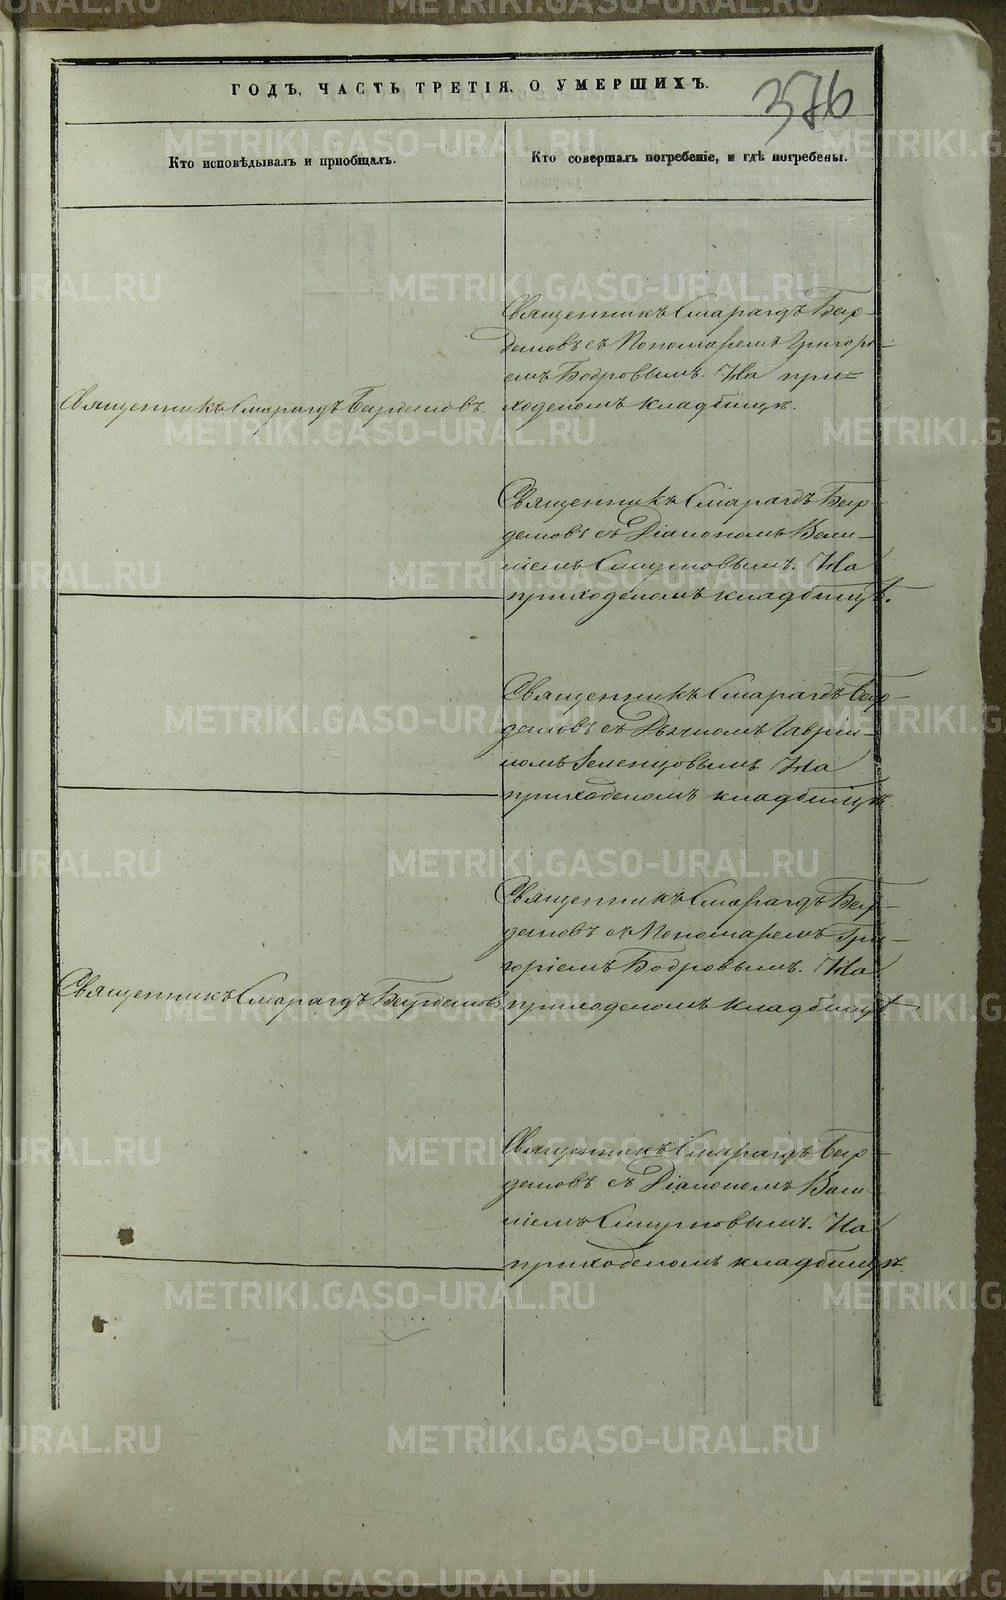 ГОДЪ, ЧАСТЬ ТРЕТІЯ, О УМЕРШИХЪ.
376
Кто исповѣдывалъ и пріобщалъ.
Кто совершалъ погребеніе, и гдѣ погребены.
Священникъ Смарагдъ
Священникъ Смарагдъ
съ Пономаремъ Григорі-
емъ Бодровымъ. На при=
ходскомъ кладбищѣ.
Священникъ Смарагдъ
съ Діакономъ
Смирновымъ. На
приходскомъ кладбищѣ.
Священникъ Смарагдъ
съ Дьячкомъ Гаврiи-
ломъ Зеленцовымъ. На
приходскомъ кладбищѣ.
Священникъ Смарагдъ
Священникъ Смарагдъ
съ Пономаремъ Гри-
горіемъ Бодровымъ. На
приходскомъ кладбищѣ
Священникъ Смарагдъ
съ Діакономъ
Смирновымъ. На
приходскомъ кладбищѣ.
METRIKI.GASO-URAL.RU